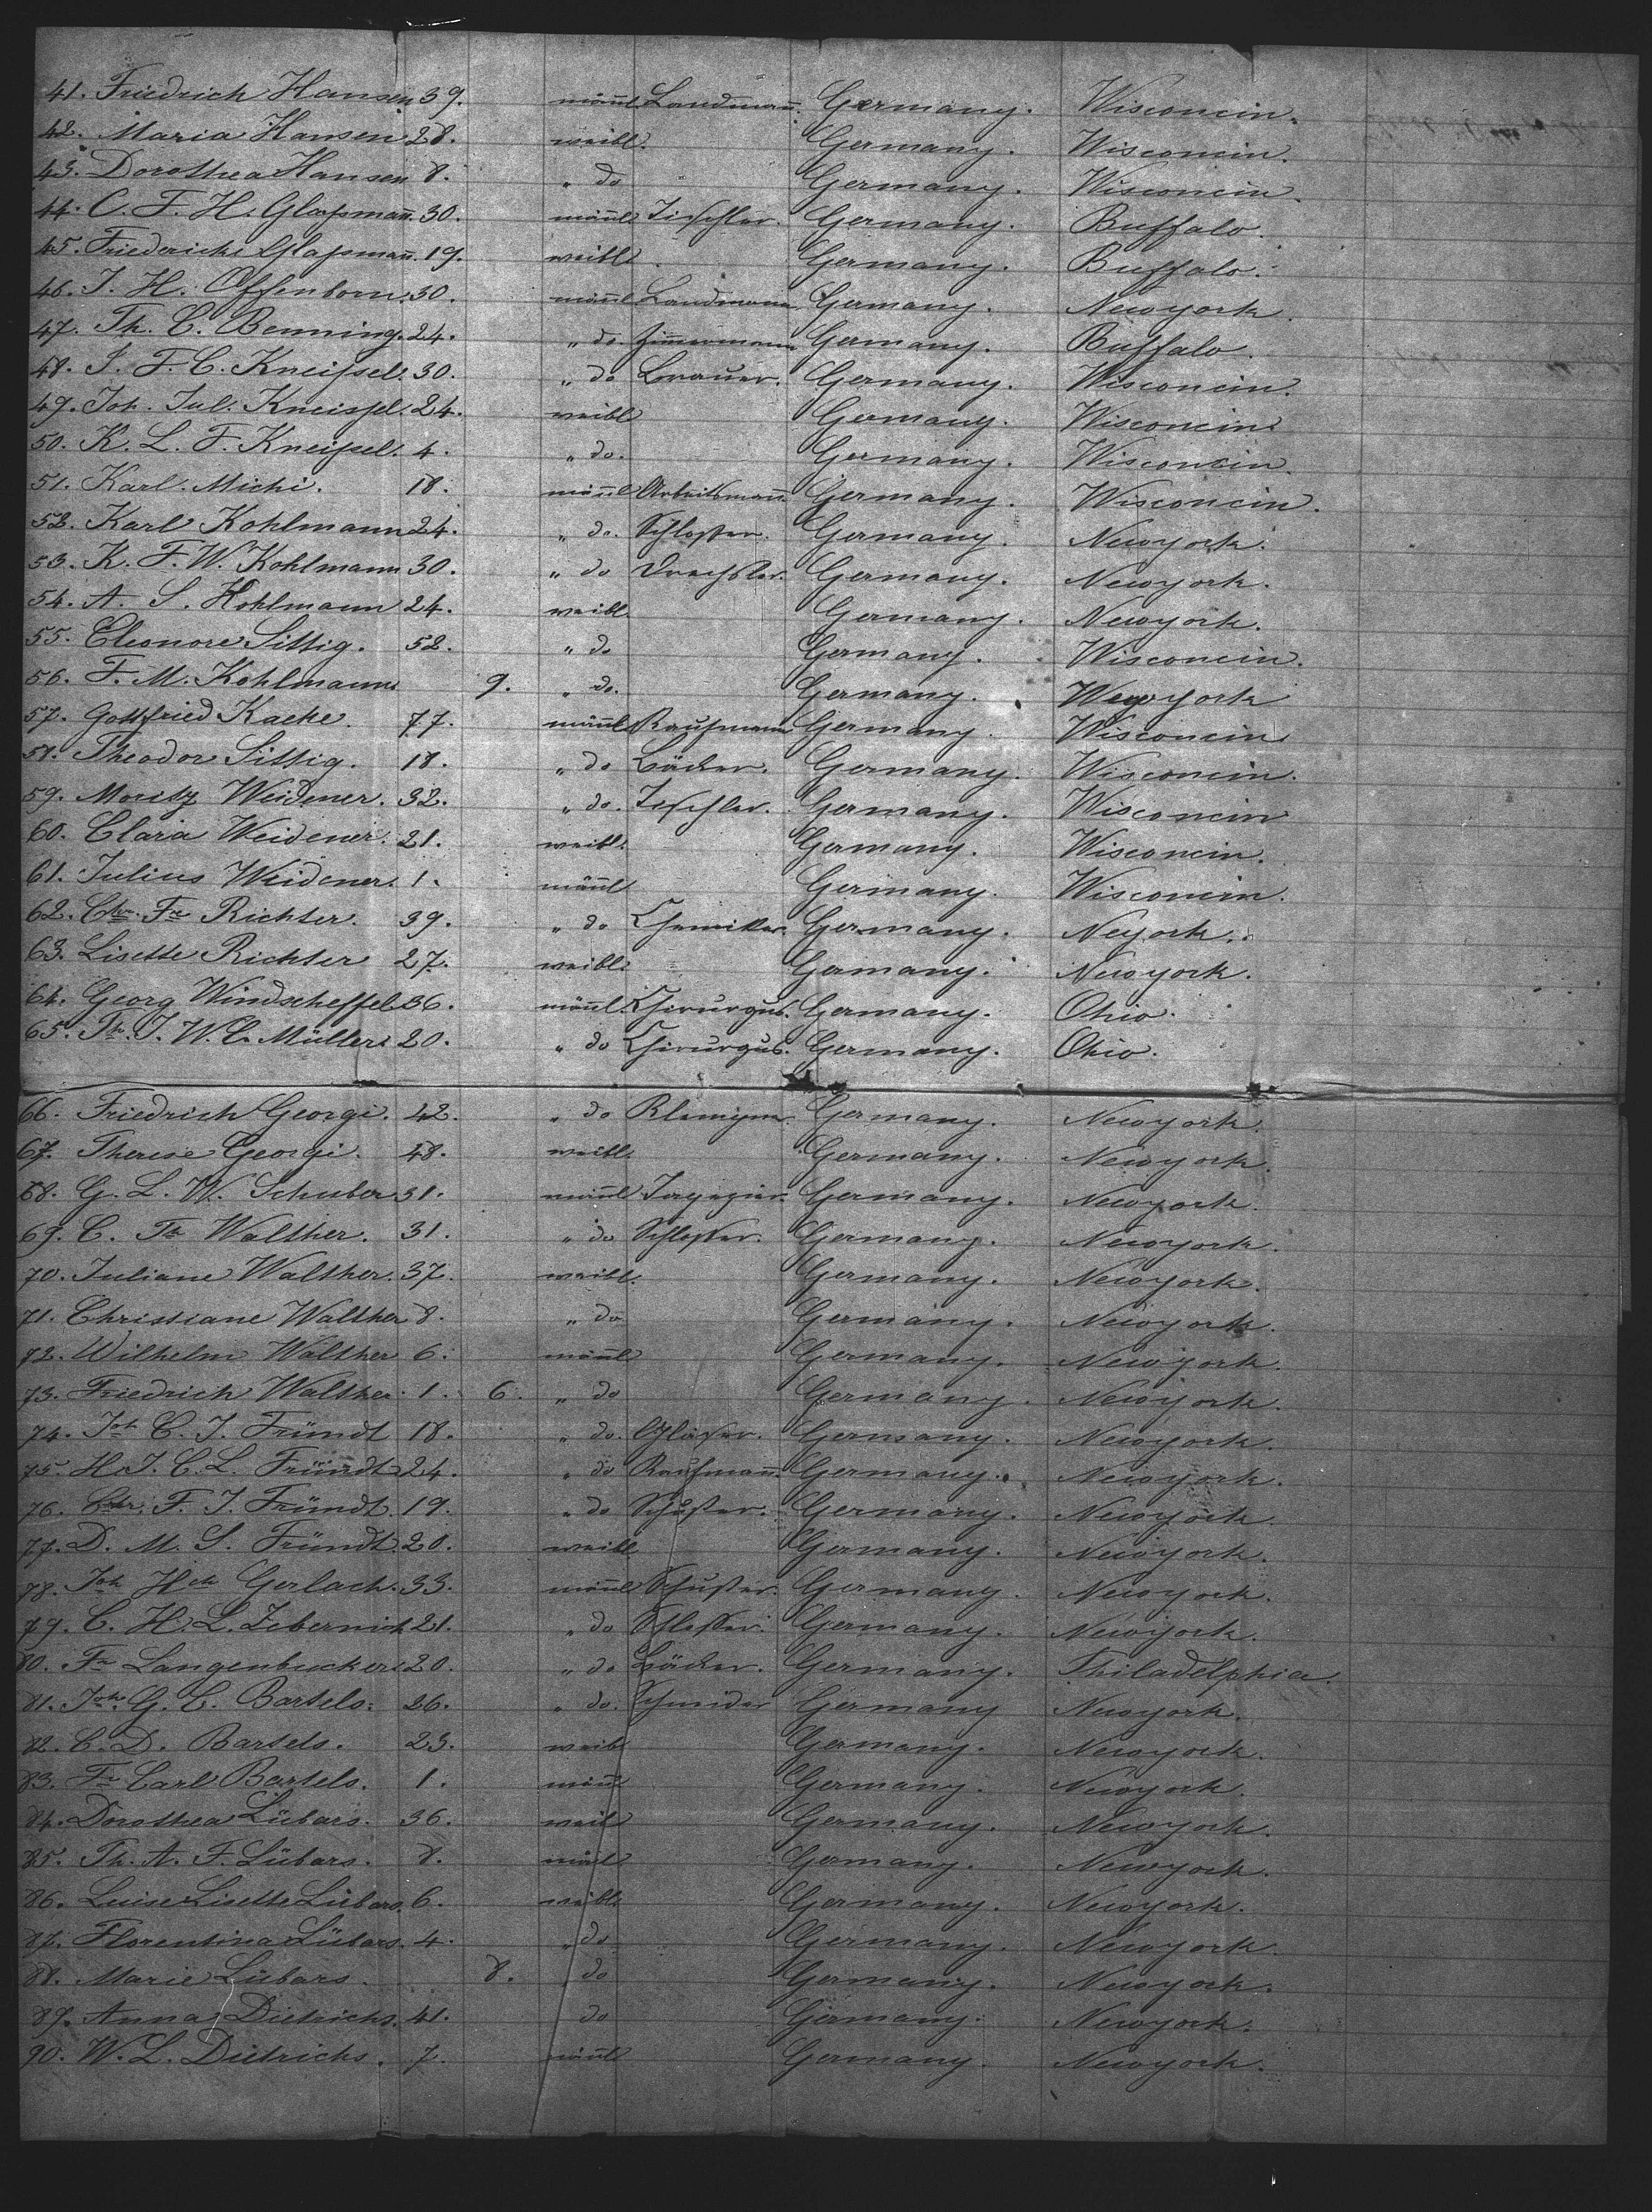 41. Friedrich Hansen 39. männl. Landmann. Germany. Wisconcin.
42. Maria Hansen 28. weibl. Germany. Wisconcin.
43. Dorothea Hansen 8. " do Germany. Wisconcin.
44. C. F. H. Glaßmañ. 30. männl Tischler. Germany. Buffalo.
45. Friederike Glaßmañ. 19. weibl. Germany. Buffalo.
46. J. H. Offenborn. 30. männl Landmann Germany. Newyork.
47. Th. C. Benning. 24. " do. Zimmermann Germany. Buffalo.
48. J. F. C. Kneißel. 30. " do Brauer. Germany. Wisconcin.
49. Joh. Jul. Kneissel. 24. weibl Germany. Wisconcin.
50. K. L. F. Kneißel. 4. " do. Germany. Wisconcin.
51. Karl Michi. 18. männl Arbeitsmann Germany. Wisconcin.
52. Karl Kohlmann 24. " do. Schlosser. Germany. Newyork.
53. K. F. W. Kohlmann 30. " do Drechsler. Germany. Newyork.
54. A. S. Kohlmann 24. weibl. Germany. Newyork.
55. Eleonore Sittig. 52. " do Germany. Wisconcin.
56. F. M. Kohlmann 9. " do. Germany. Newyork
57. Gottfried Kacke. 77. männl Kaufmann Germany. Wisconcin
58. Theodor Sittig. 18. " do Bäcker. Germany. Wisconcin.
59. Moritz Weidener. 32. " do. Tischler. Germany. Wisconcin
60. Clara Weidener. 21. weibl. Germany. Wisconcin.
61. Julius Weidener. 1. männl Germany. Wisconcin.
62. Chr. Fr Richter. 39. " do Chemiker. Germany. Neyork.
63. Lisette Richter 27. weibl. Germany. Newyork.
64. Georg Windscheffel 36. männl. Chirurgus. Germany. Ohio.
65. Th. J. W. C. Müller 20. " do Chirurgus. Germany. Ohio.
66. Friedrich Georgi. 42. " do Germany. Newyork.
67. Therese Georgi. 48. weibl. Germany. Newyork.
68. G. L. W. Schuber 31. männl Germany. Newyork.
69. C. Th Walther. 31. " do Schlosser. Germany. Newyork.
70. Juliane Walther. 37. weibl. Germany. Newyork.
71. Christiane Walther 8. " do Germany. Newyork.
72. Wilhelm Walther 6. männl Germany. Newyork.
73. Friedrich Walther. 1. 6. " do Germany. Newyork.
74. Joh C. J. Fründt 18. " do. Glaser. Germany. Newyork.
75. H. J. C. L. Fründt 24. " do Kaufmann. Germany. Newyork.
76. Chr. F. J. Fründt. 19. " do Schuster. Germany. Newyork.
77. D. M. S. Fründt. 20. weibl Germany. Newyork.
78. Joh Hch Gerlach. 33. männl Schuster. Germany. Newyork.
79. C. H. L. Zebernick 21. " do Schlosser. Germany. Newyork.
80. Fr Langenbucker 20. " do Bäcker. Germany. Philadelphia.
81. Joh. G. C. Bartels. 26. " do. Schneider Germany Newyork.
82. C. D. Bartels. 23. weibl Germany. Newyork.
83. Fr Carl Bartels. 1. männl Germany. Newyork.
84. Dorothea Lübars. 36. weibl Germany. Newyork.
85. Th. A. F. Lübars. 8. männl Germany. Newyork.
86. Luise Lisette Lübars. 6. weibl. Germany. Newyork.
87. Florentina Lübars. 4. " do Germany. Newyork.
88. Marie Lübars. 8. do Germany. Newyork.
89. Anna Dietrichs. 41. do Germany. Newyork.
90. W. L. Dietrichs. 7. männl Germany. Newyork.